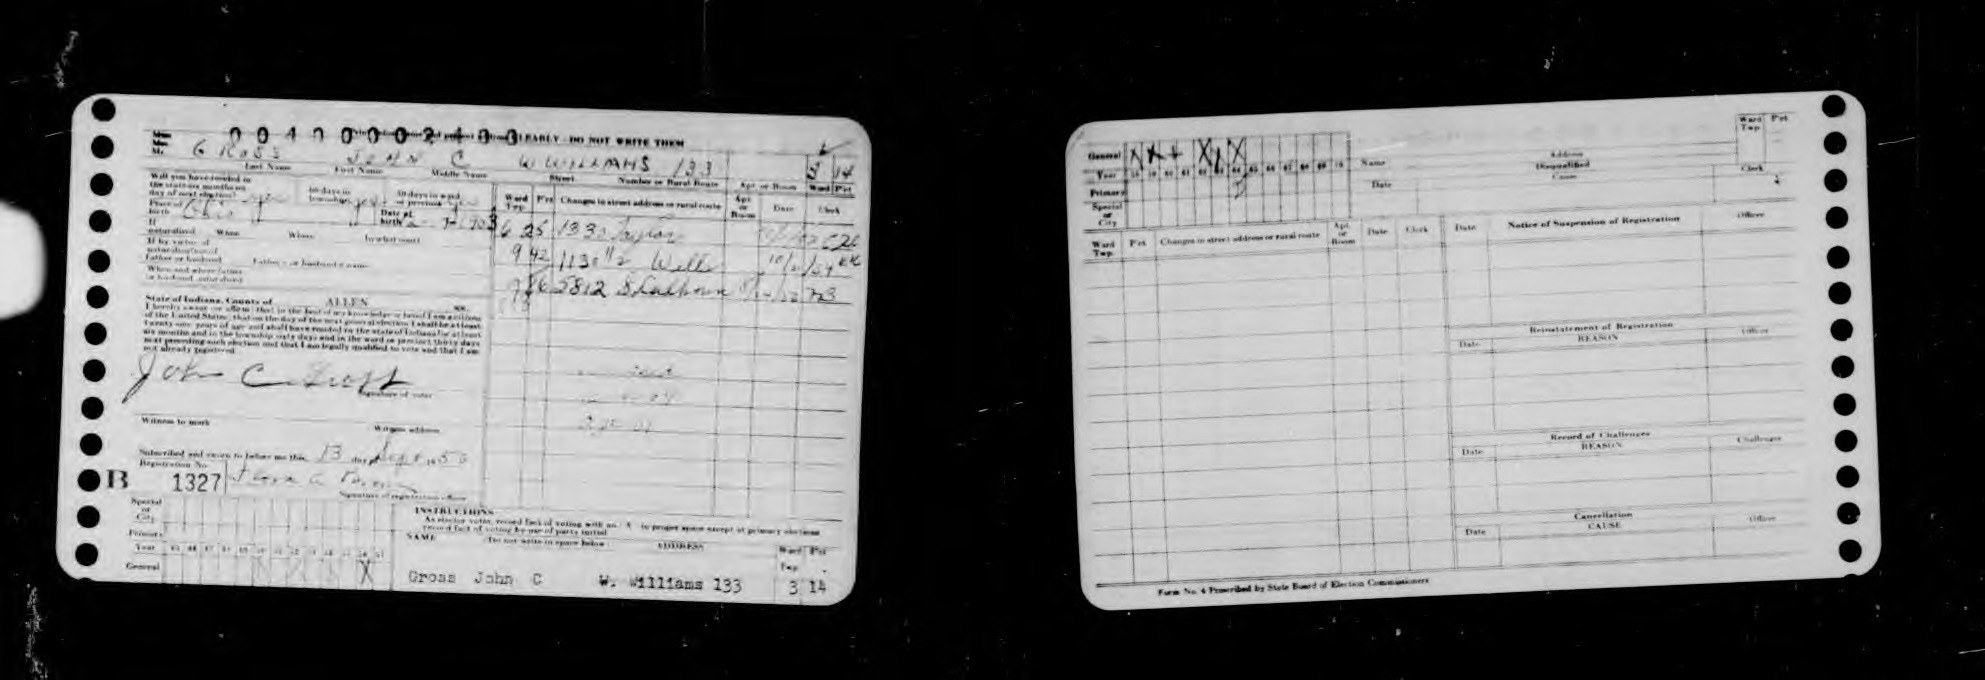 004000002400
CLEARLY - DO NOT WRITE THEM
Mr.
GROSS JOHN C W WILLIAMS 133 3 14
Last Name First Name Middle Name Street Number or Rural Route Apt. or Room Ward P'ct
Will you have resided in
the state six months on
day of next election? yes
60 days in
township yes
30 days in ward
or precinct yes
Place of
birth Ohio
Date of
birth
If
naturalized When Where In what court
If by virtue of
naturalization of
father or husband Father's or husband's name
When and where father
or husband naturalized
Ward
Twp. P'ct Changes in street address or rural route Apt.
or
Room Date Clerk
6 25 1330 Taylor
9 42 1130 1/2 Wells 10/ /54
5812 S Calhoun
State of Indiana, County of ALLEN SS.
I hereby swear (or affirm) that to the best of my knowledge or belief I am a citizen
of the United States; that on the day of the next general election I shall be at least
twenty-one years of age and shall have resided in the state of Indiana for at least
six months and in the township sixty days and in the ward or precinct thirty days
next preceding such election and that I am legally qualified to vote and that I am
not already registered
John C. Gross
Signature of voter
Witness to mark Witness address
Subscribed and sworn to before me this 13 day of Sept 1950
Registration No.
B 1327
Signature of registration officer
Special
or
City
Primary
Year
General X
INSTRUCTIONS
As elector votes, record fact of voting with an X in proper space except at primary elections
record fact of voting by use of party initial
NAME Do not write in space below ADDRESS Ward
Twp P'ct
Gross John C W. Williams 133 3 14
General X X X
Year 58 59 60 61 62 63 64 65 66 67 68 69 70
Primary
Special
or
City
Name Address
Disqualified
Date Cause Clerk
Ward
Twp. P'ct
Ward
Twp. P'ct Changes in street address or rural route Apt.
or
Room Date Clerk
Date Notice of Suspension of Registration Officer
Reinstatement of Registration
Date REASON Officer
Record of Challenges
Date REASON Challenger
Cancellation
Date CAUSE Officer
Form No. 4 Prescribed by State Board of Election Commissioners